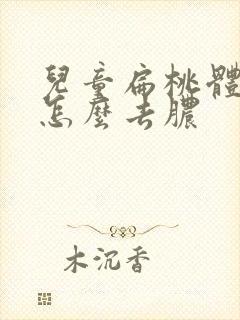 兒童扁桃體
怎麼去膿
木沉香